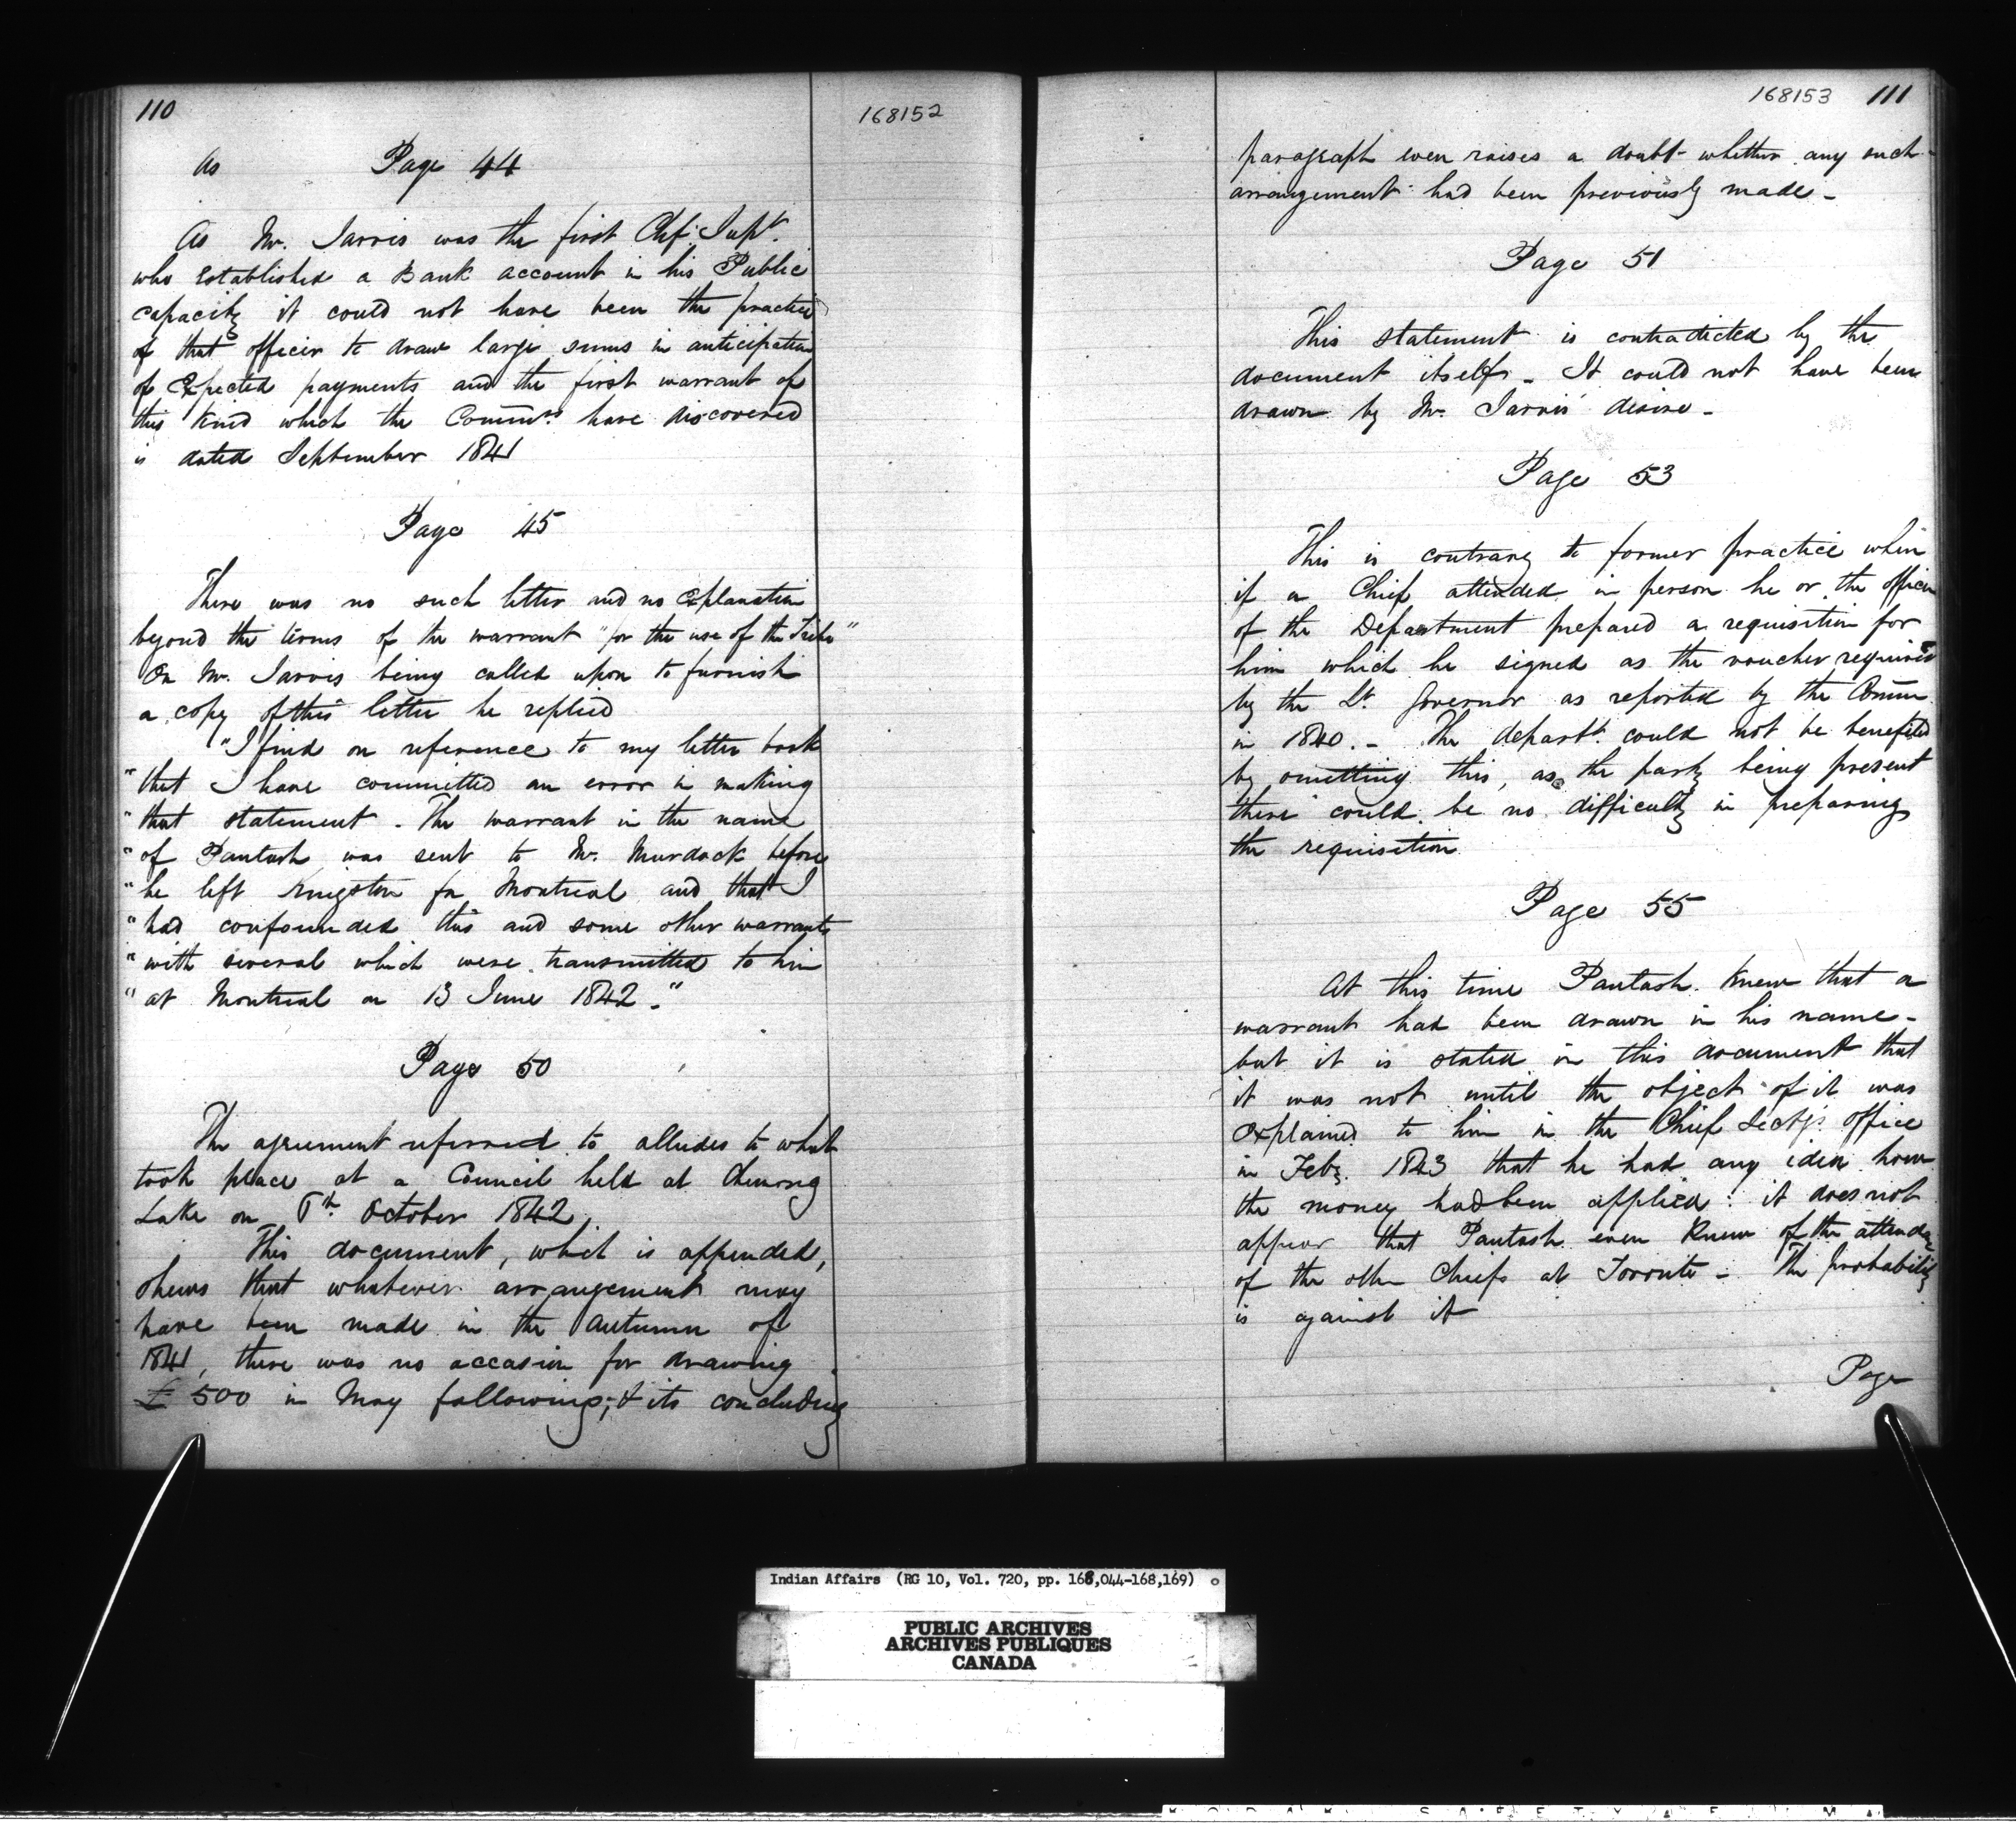 110
168152
As Page 44
As Mr. Jarvis was the first Chf. Supt.
who established a Bank account in his Public
capacity it could not have been the practice
of that officer to draw large sums in anticipation
of expected payments and the first warrant of
this kind which the Commrs. have discovered
is dated September 1841
Page 45
There was no such letter and no explanation
beyond the terms of the warrant "for the use of the Tribe"
On Mr. Jarvis being called upon to furnish
a copy of this letter he replied
"I find on reference to my letter book
"that I have committed an error in making
"that statement. The warrant in the name
"of Pautash was sent to Mr. Murdock before
"he left Kingston for Montreal and that I
"had confounded this and some other warrants
"with several which were transmitted to him
"at Montreal on 13 June 1842."
Page 50
The agreement referred to alludes to what
took place at a Council held at Chemong
Lake on th October 1842.
This document, which is appended,
shews that whatever arrangement may
have been made in the Autumn of
1841, there was no occasion for drawing
£500 in May following; & its concluding
168153 111
paragraph even raises a doubt whether any such
arrangement had been previously made -
Page 51
This statement is contradicted by the
document itself - It could not have been
drawn by Mr. Jarvis' desire -
Page 53
This is contrary to former practice when
if a Chief attended in person he or the officer
of the Department prepared a requisition for
him which he signed as the voucher required
by the Lt. Governor as reported by the Comm
in 1840. - The departt. could not be benefited
by omitting this, as the party being present
there could be no difficulty in preparing
the requisition
Page 55
At this time Pautash knew that a
warrant had been drawn in his name -
but it is stated in this document that
it was not until the object of it was
explained to him in the Chief Secty's office
in Feby. 1843 that he had any idea how
the money had been applied: it does not
appear that Pautash even knew of the attendce
of the other Chiefs at Toronto - The probability
is against it
Page
Indian Affairs (RG 10, Vol. 720, pp. 168,044-168,169)
PUBLIC ARCHIVES
ARCHIVES PUBLIQUES
CANADA